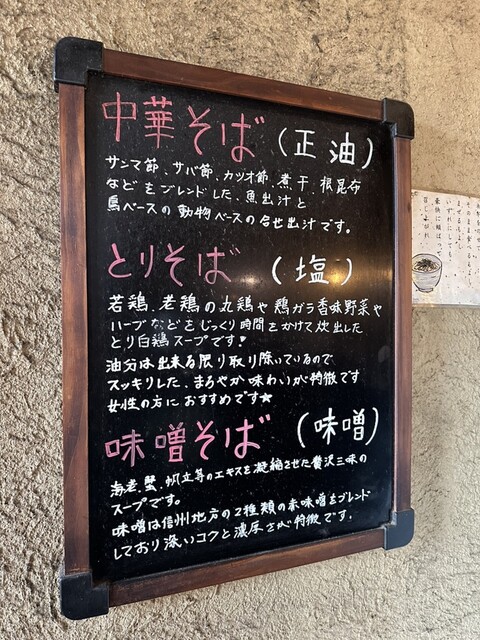 中華そば (正油)
サンマ節、サバ節、カツオ節、煮干、根昆布
などをブレンドした、魚出汁と
鳥ベースの動物ベースの合せ出汁です。
とりそば (塩)
若鶏、老鶏の丸鶏や鶏ガラ香味野菜や
ハーブなどをじっくり時間をかけて炊出した
とり白鶏スープです!
油分は出来る限り取り除いているので
スッキリした、まろやか味わいが特徴です
女性の方におすすめです★
味噌そば (味噌)
海老、蟹、帆立等のエキスを凝縮させた贅沢三味の
スープです。
味噌は信州地方の2種類の赤味噌をブレンド
しており深いコクと濃厚さが特徴です.